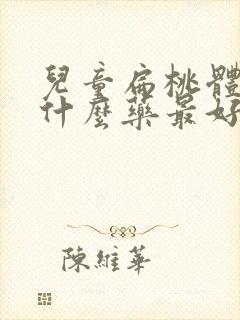 兒童扁桃體
什麼藥最好
陳維華